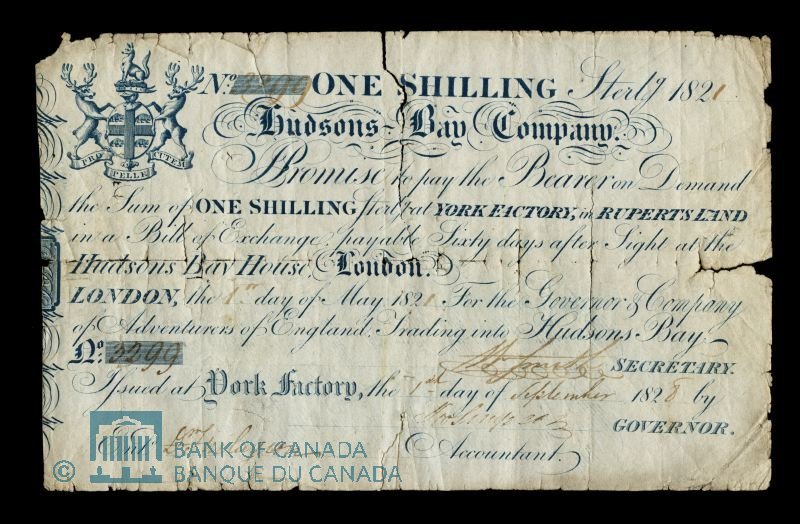 PRO PELLE CUTEM
No. 3299 ONE SHILLING Sterlg 1821
Hudsons Bay Company.
Promise to pay the Bearer on Demand
the Sum of ONE SHILLING Sterlg at YORK FACTORY, in RUPERTS LAND
in a Bill of Exchange payable Sixty days after Sight at the
Hudsons Bay House, London.
LONDON, the 1st day of May 1821. For the Governor & Company
of Adventurers of England, Trading into Hudsons Bay.
No. 3299
SECRETARY.
Issued at York Factory, the 1st day of September 1828 by
GOVERNOR.
Entd
Accountant.
© BANK OF CANADA
BANQUE DU CANADA